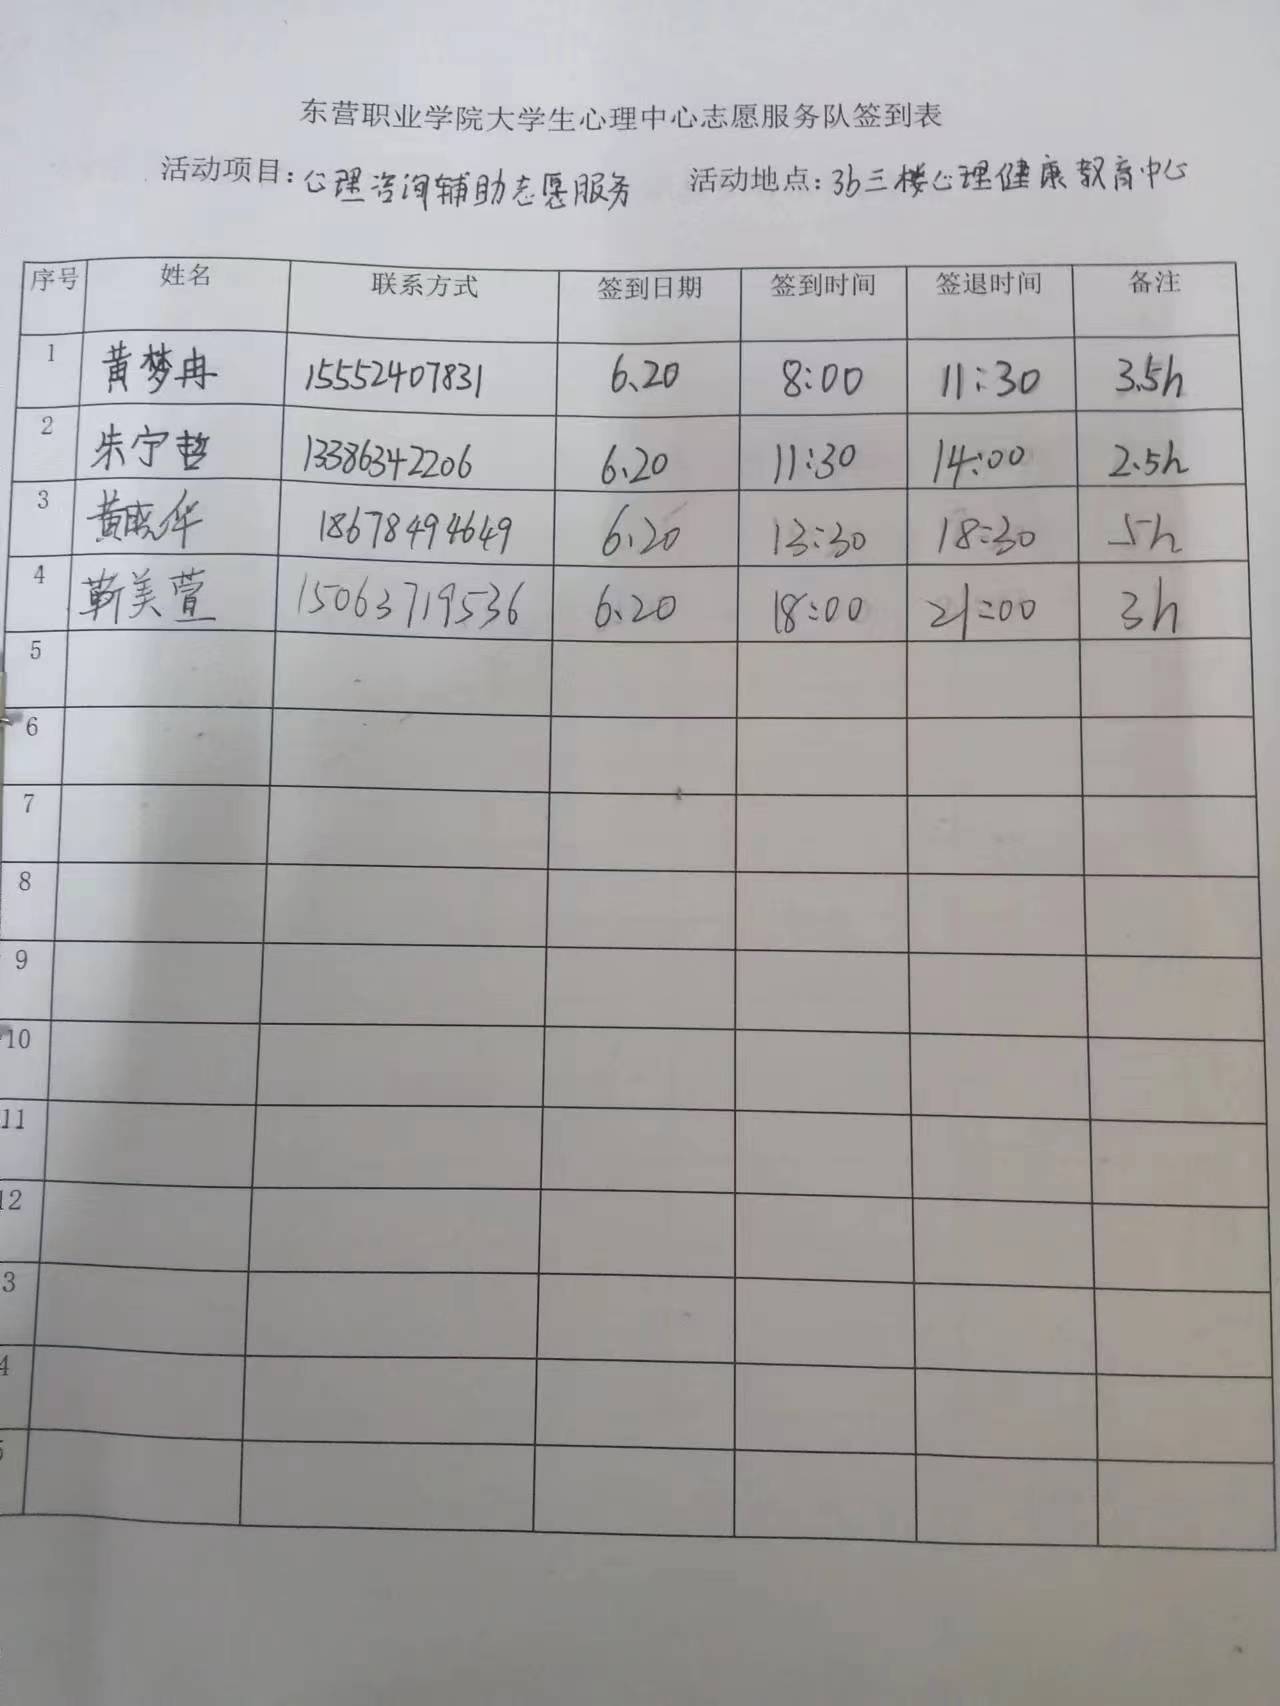 东营职业学院大学生心理中心志愿服务队签到表
活动项目:心理咨询辅助志愿服务 活动地点:3b三楼心理健康教育中心
序号 姓名 联系方式 签到日期 签到时间 签退时间 备注
1 黄梦冉 15552407831 6.20 8:00 11:30 3.5h
2 朱宁哲 13386342206 6.20 11:30 14:00 2.5h
3 黄晓华 18678494649 6.20 13:30 18:30 5h
4 靳美萱 15063719536 6.20 18:00 21:00 3h
5
6
7
8
9
10
11
12
3
4
5